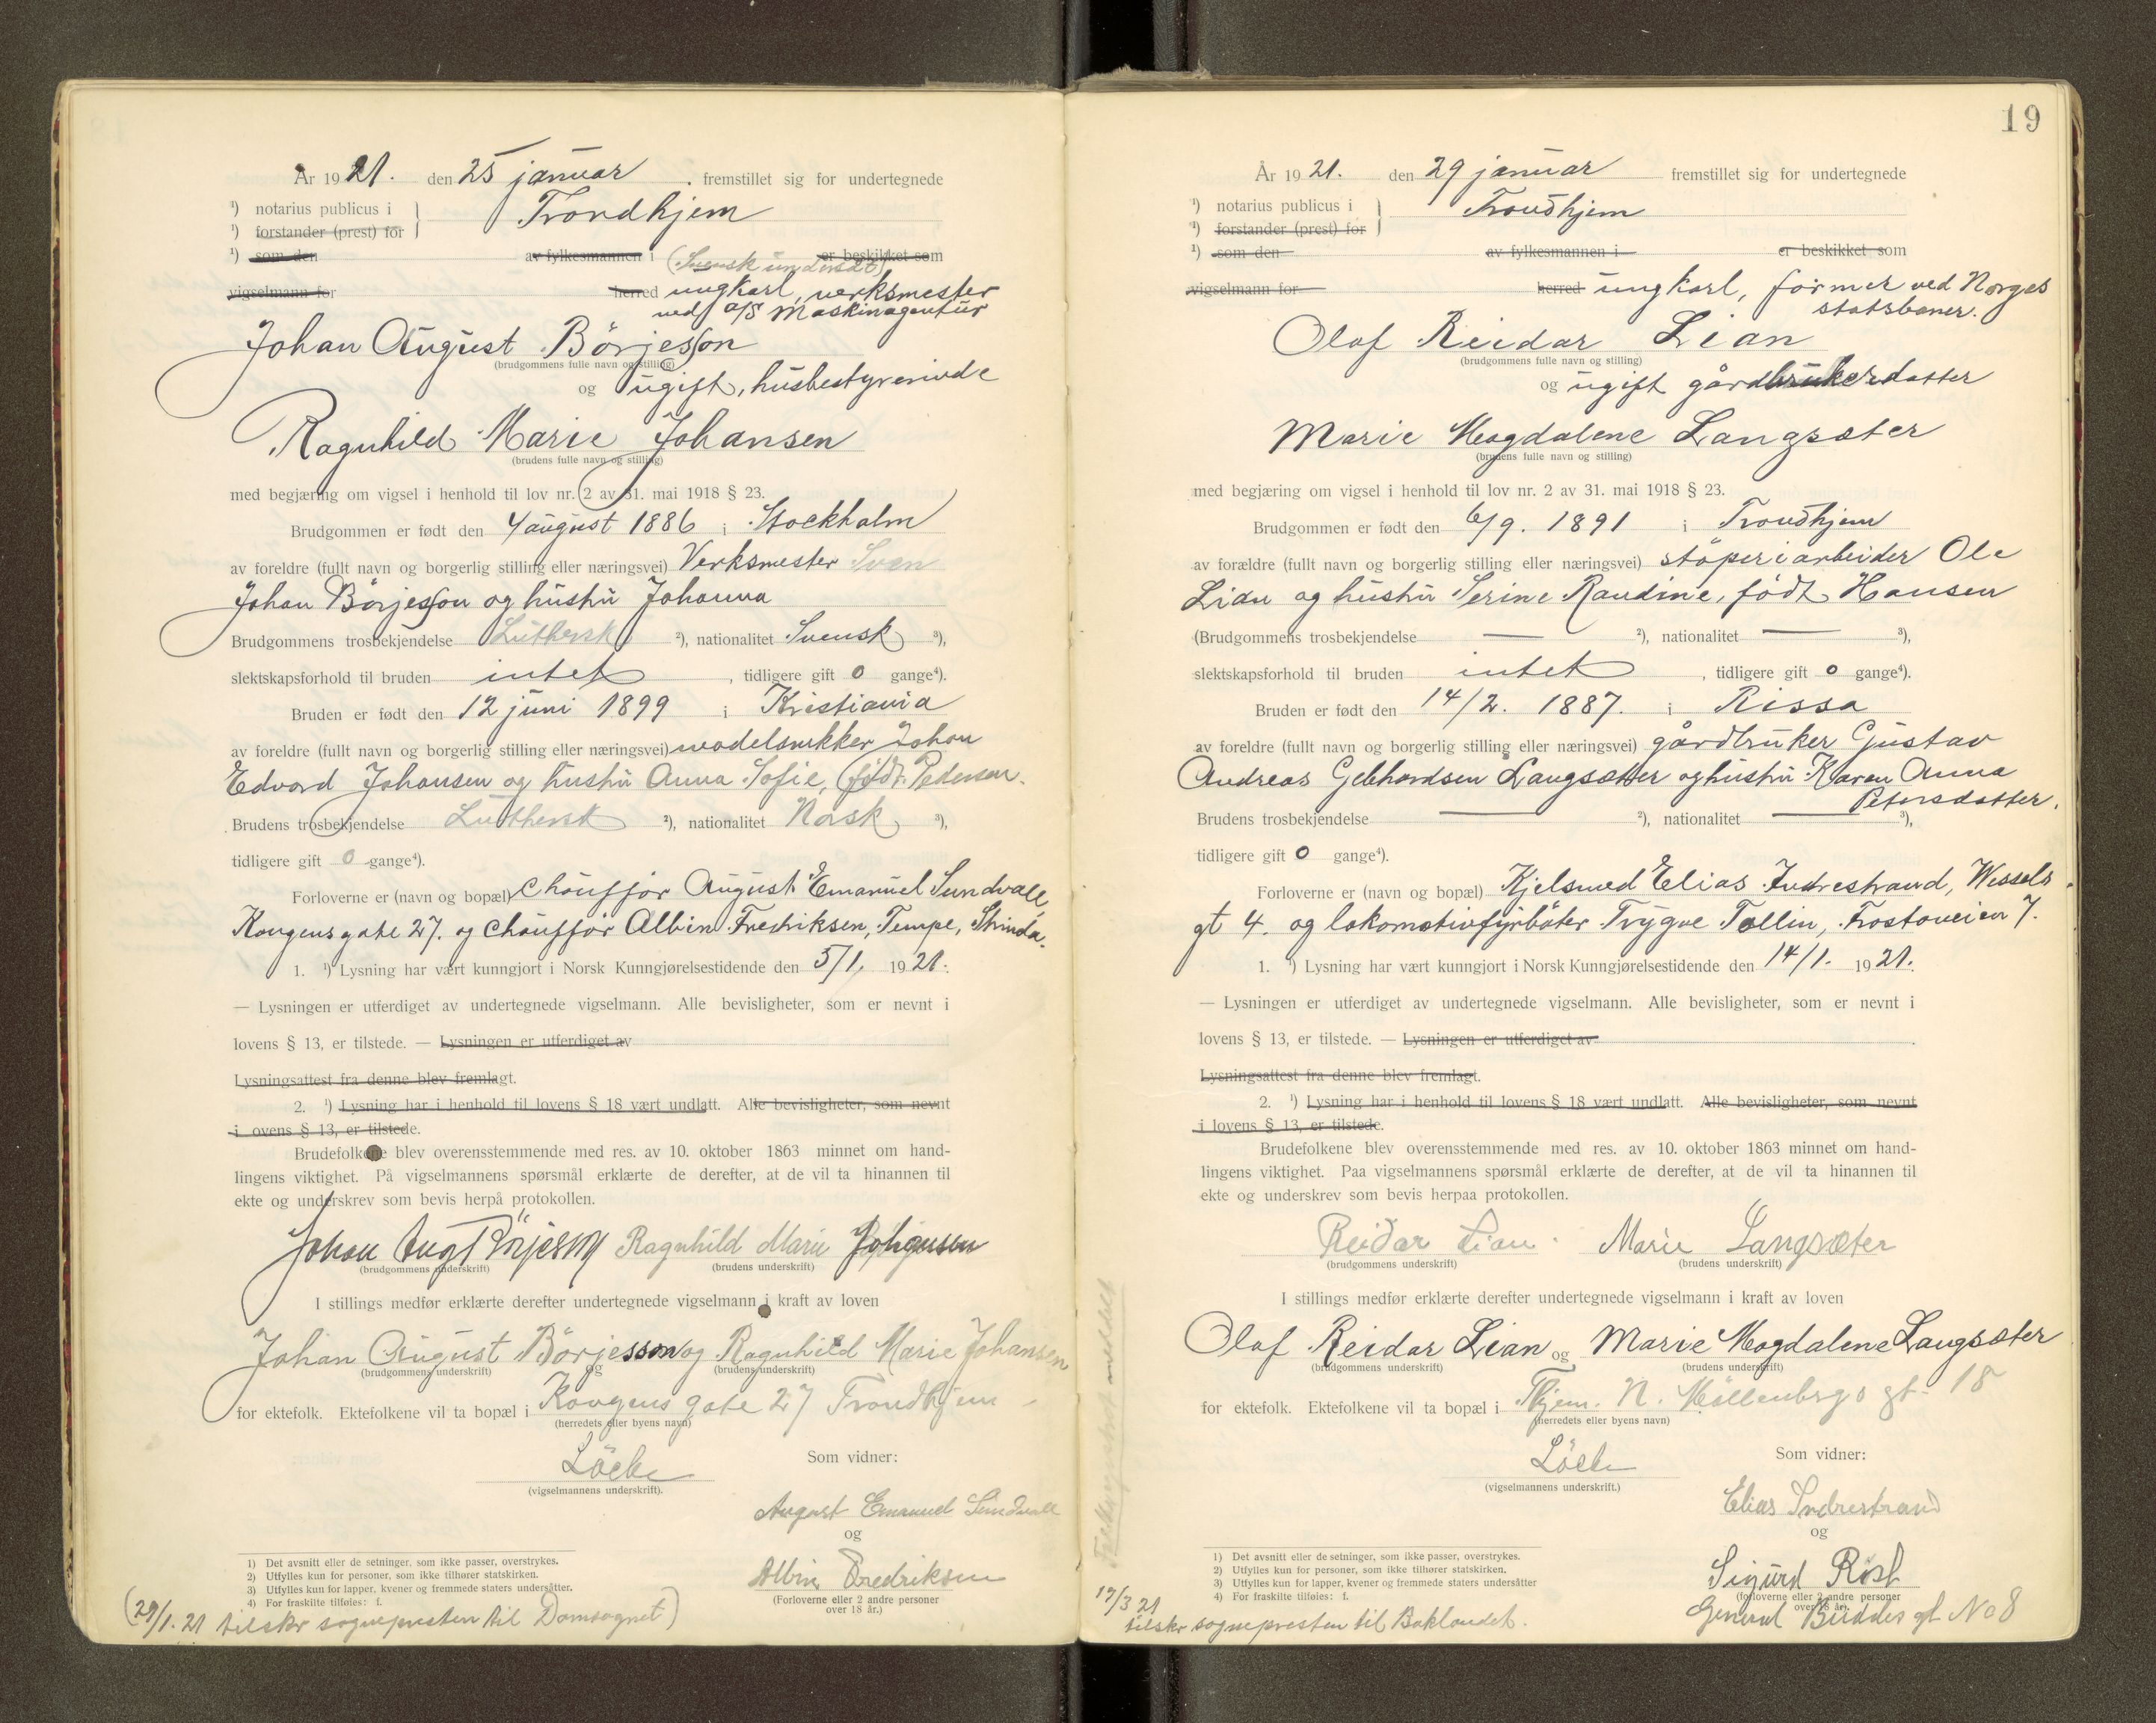 År 1921. den 25 januar fremstillet sig for undertegnede
¹) notarius publicus i
Trondhjem
¹) forstander (prest) for
¹) som den av fylkesmannen i (Svensk undersåt) er beskikket som
vigselmann for herred ungkarl, verksmester
ved A/S Maskinagentur
Johan August Börjesson
(brudgommens fulle navn og stilling)
og ugift, husbestyrerinde
Ragnhild Marie Johansen
(brudens fulle navn og stilling)
med begjæring om vigsel i henhold til lov nr. 2 av 31. mai 1918 § 23.
Brudgommen er født den 4 august 1886 i Stockholm
av foreldre (fullt navn og borgerlig stilling eller næringsvei) Verksmester Sven
Johan Börjesson og hustru Johanna
Brudgommens trosbekjendelse Luthersk ²), nationalitet Svensk ³),
slektskapsforhold til bruden intet, tidligere gift 0 gange⁴).
Bruden er født den 12 juni 1899 i Kristiania
av foreldre (fullt navn og borgerlig stilling eller næringsvei) modelsnikker Johan
Edvard Johansen og hustru Anna Sofie, født Pedersen.
Brudens trosbekjendelse Luthersk ²), nationalitet Norsk ³),
tidligere gift 0 gange⁴).
Forloverne er (navn og bopæl) Chauffør August Emanuel Sundvall,
Kongensgate 27. og Chauffør Albin Fredriksen, Tempe, Strinda.
1. ¹) Lysning har vært kunngjort i Norsk Kunngjørelsestidende den 5/1. 1921.
— Lysningen er utferdiget av undertegnede vigselmann. Alle bevisligheter, som er nevnt i
lovens § 13, er tilstede. — Lysningen er utferdiget av
Lysningsattest fra denne blev fremlagt.
2. ¹) Lysning har i henhold til lovens § 18 vært undlatt. Alle bevisligheter, som nevnt
i ovens § 13, er tilstede.
Brudefolkene blev overensstemmende med res. av 10. oktober 1863 minnet om hand-
lingens viktighet. På vigselmannens spørsmål erklærte de derefter, at de vil ta hinannen til
ekte og underskrev som bevis herpå protokollen.
Johan Aug Börjesson Ragnhild Marie Johansen
(brudgommens underskrift) (brudens underskrift)
I stillings medfør erklærte derefter undertegnede vigselmann i kraft av loven
Johan August Börjesson og Ragnhild Marie Johansen
(brudgommens underskrift) og (brudens underskrift)
for ektefolk. Ektefolkene vil ta bopæl i Kongens gate 27 Trondhjem
(herredets eller byens navn)
Löcke Som vidner:
(vigselmannens underskrift).
August Emanuel Sundvall
og
Albin Fredriksen
(Forloverne eller 2 andre personer
over 18 år.)
1) Det avsnitt eller de setninger, som ikke passer, overstrykes.
2) Utfylles kun for personer, som ikke tilhører statskirken.
3) Utfylles kun for lapper, kvener og fremmede staters undersåtter.
4) For fraskilte tilføies: f.
(29/1.21 tilskr sognepresten til Domsognet)
19
År 1921. den 29 januar fremstillet sig for undertegnede
¹) notarius publicus i
Trondhjem
¹) forstander (prest) for
¹) som den av fylkesmannen i er beskikket som
vigselmann for herred ungkarl, former ved Norges
statsbaner.
Olaf Reidar Lian
(brudgommens fulle navn og stilling)
og ugift gårdbrukerdatter
Marie Magdalene Langsæter
(brudens fulle navn og stilling)
med begjæring om vigsel i henhold til lov nr. 2 av 31. mai 1918 § 23.
Brudgommen er født den 6/9. 1891 i Trondhjem
av forældre (fullt navn og borgerlig stilling eller næringsvei) støperiarbeider Ole
Lian og hustru Serine Randine, født Hansen
(Brudgommens trosbekjendelse — ²), nationalitet — ³),
slektskapsforhold til bruden intet, tidligere gift 0 gange⁴).
Bruden er født den 14/2. 1887. i Rissa
av foreldre (fullt navn og borgerlig stilling eller næringsvei) gårdbruker Gustav
Andreas Gebhardsen Langsætter og hustru Karen Anna
Petersdatter.
Brudens trosbekjendelse — ²), nationalitet — ³),
tidligere gift 0 gange⁴).
Forloverne er (navn og bopæl) Kjelsmed Elias Indrestrand, Wessels
gt 4. og lokomotivfyrbøter Trygve Tollin, Frostaveien 7.
1. ¹) Lysning har vært kunngjort i Norsk Kunngjørelsestidende den 14/1. 1921.
— Lysningen er utferdiget av undertegnede vigselmann. Alle bevisligheter, som er nevnt i
lovens § 13, er tilstede. — Lysningen er utferdiget av
Lysningsattest fra denne blev fremlagt.
2. ¹) Lysning har i henhold til lovens § 18 vært undlatt. Alle bevisligheter, som nevnt
i lovens § 13, er tilstede.
Brudefolkene blev overensstemmende med res. av 10. oktober 1863 minnet om hand-
lingens viktighet. Paa vigselmannens spørsmål erklærte de derefter, at de vil ta hinannen til
ekte og underskrev som bevis herpaa protokollen.
Reidar Lian. Marie Langsæter
(brudgommens underskrift) (brudens underskrift)
I stillings medfør erklærte derefter undertegnede vigselmann i kraft av loven
Olaf Reidar Lian og Marie Magdalene Langsæter
(brudgommens underskrift) (brudens underskrift)
for ektefolk. Ektefolkene vil ta bopæl i Thjem. N. Möllenbergs gt. 18
(herredets eller byens navn)
Löcke Som vidner:
(vigselmannens underskrift.)
Elias Indrestrand
og
Sigurd Rist
(forloverne eller 2 andre personer
over 18 år).
General Buddes gt No 8
1) Det avsnitt eller de setninger, som ikke passer, overstrykes.
2) Utfylles kun for personer, som ikke tilhører statskirken.
3) Utfylles kun for lapper, kvener og fremmede staters undersåtter
4) For fraskilte tilføies: f.
17/3 21
tilskr sognepresten til Baklandet.